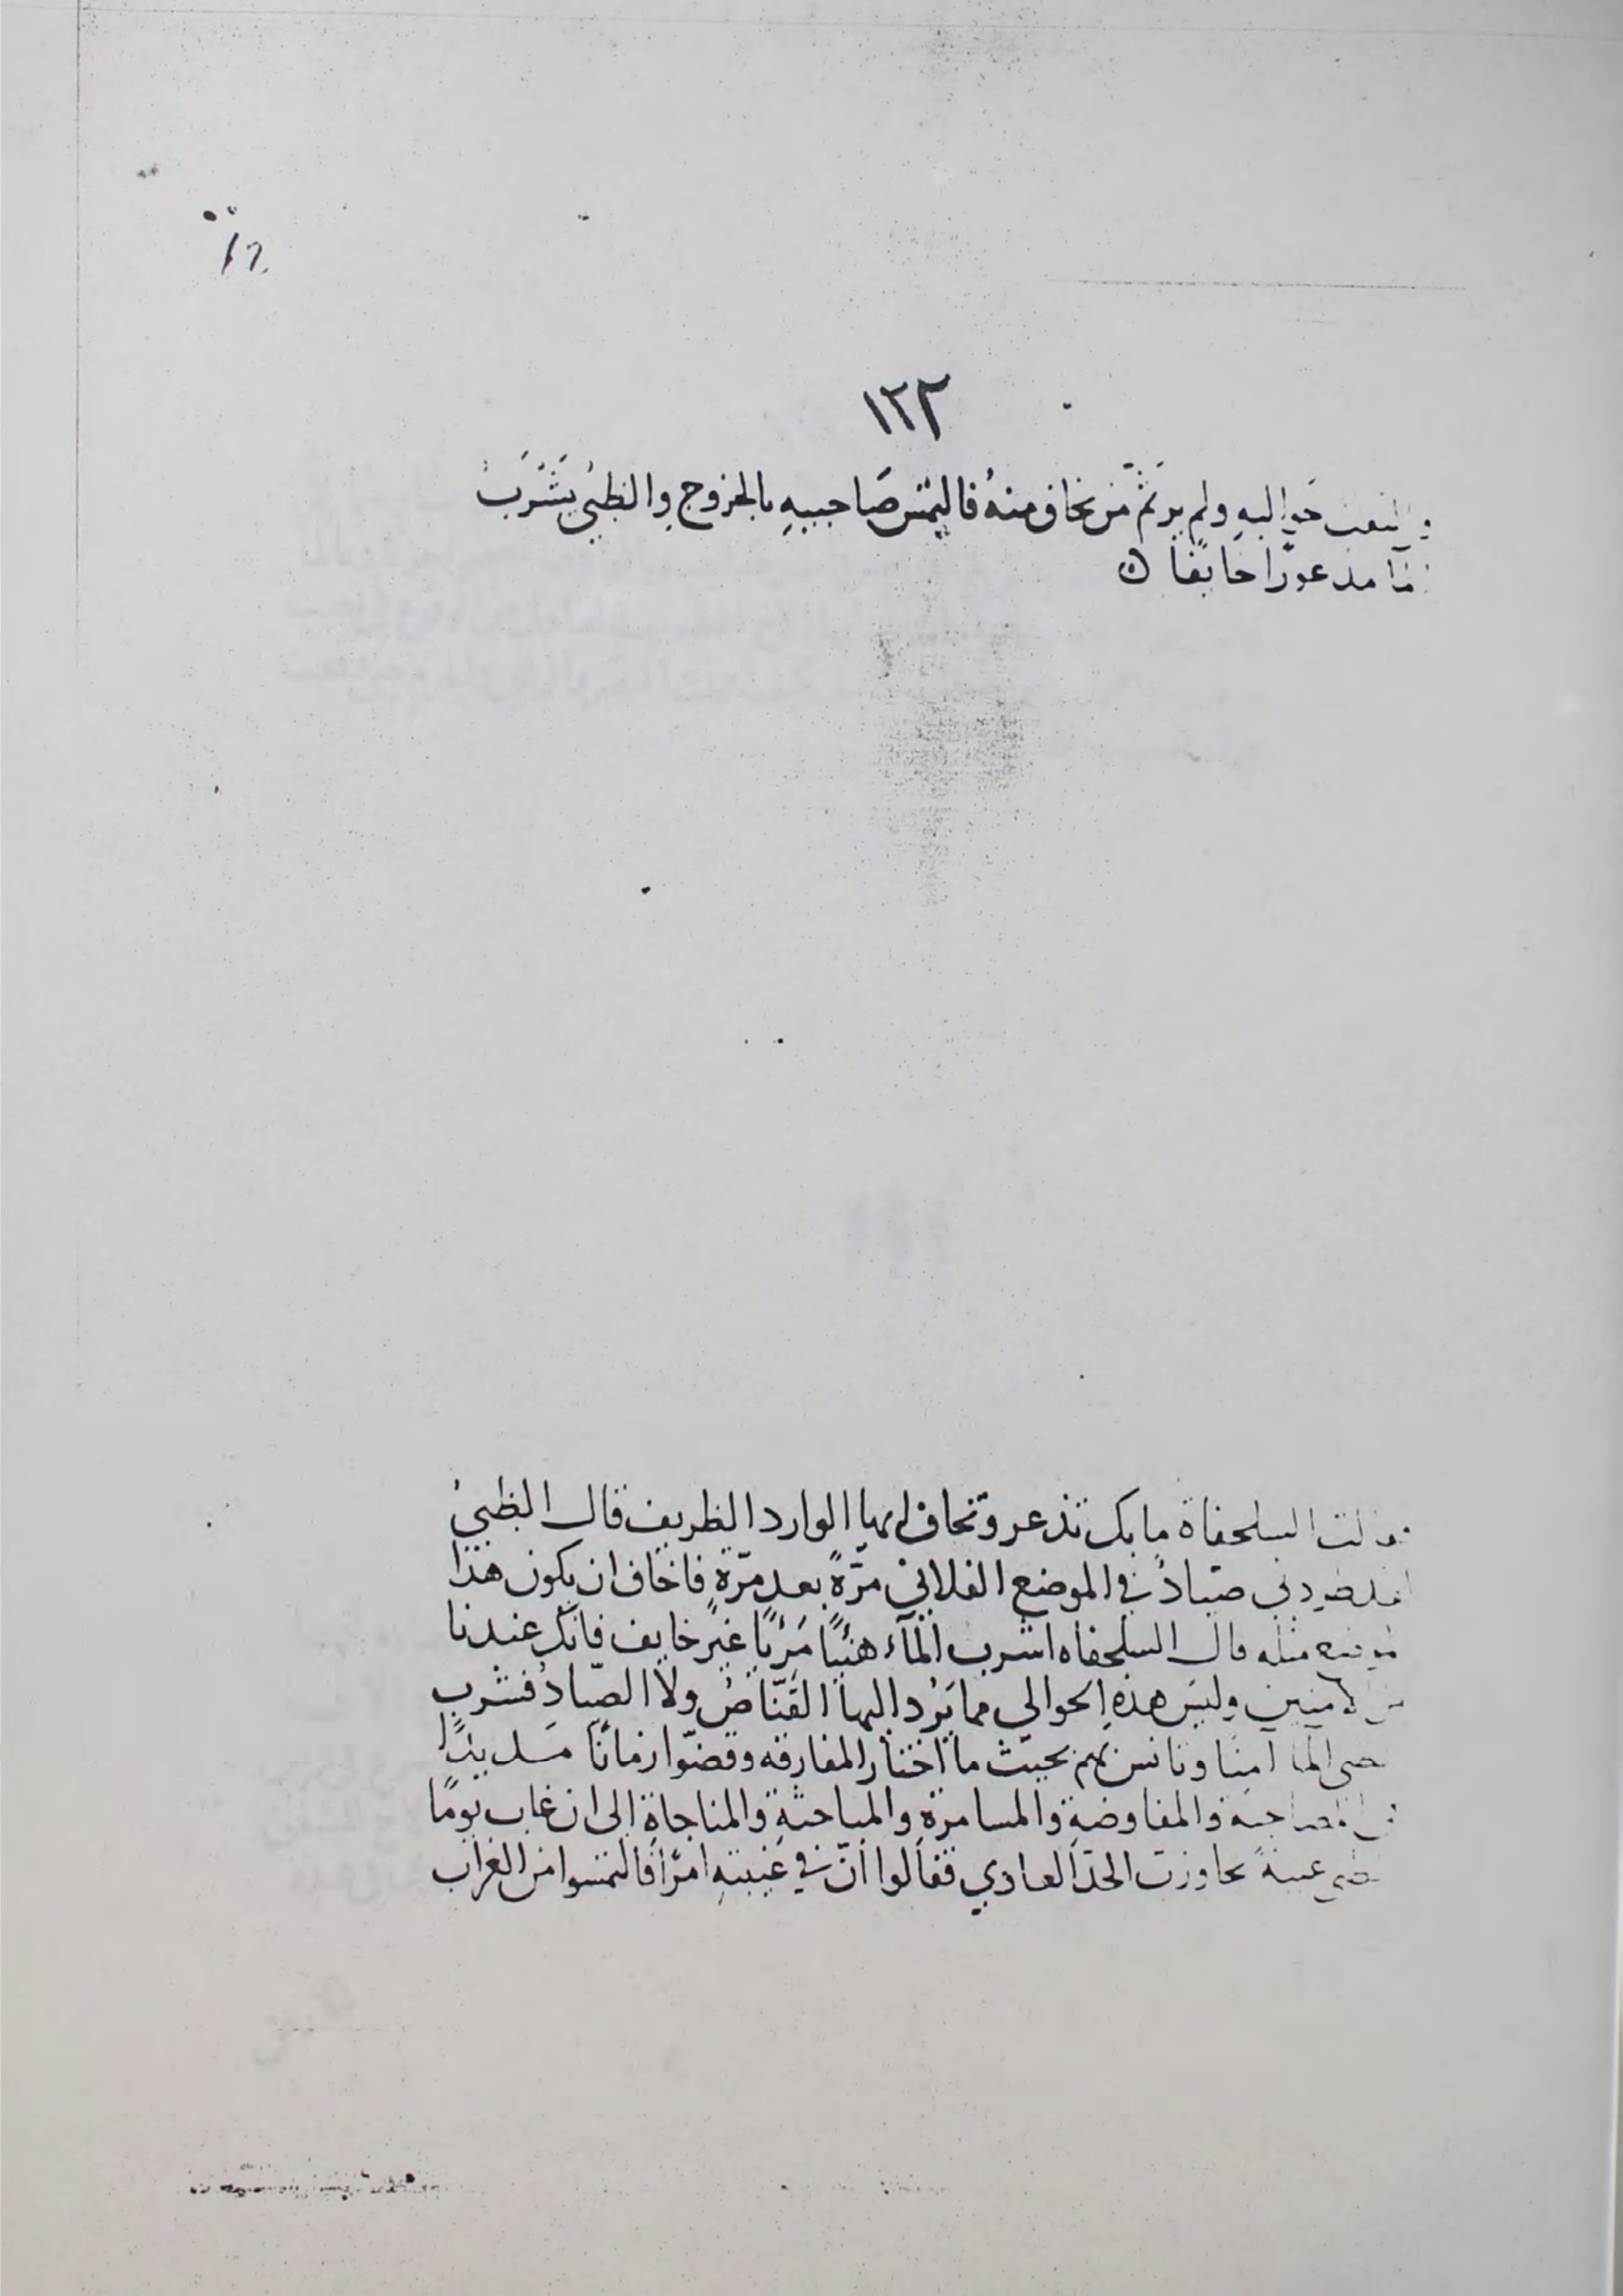 ١٢٢
حواليه ولم ير ثَمَّ من يخاف منهُ فالتمس صَاحبيهِ بالخروج والظبيُ يَشْرَبُ
مدعورًا خايفًا ن
السلحفاة ما بك تذعر وتخاف ايها الوارد الظريف قال الظبيُ
صيادٌ في الموضع الفلاني مرّةً بعد مرّةٍ فاخاف ان يكون هذا
مثله قال السلحفاه اشرب المآء هنيًا مَريًا غير خايف فانك عندنا
وليس هذهِ الحوالي مما يَرُد اليها القَنّاصُ ولا الصيّادُ فشرب
آمنًا وتانس بهم بحيث ما اختار المفارقه وقضوا زمانًا مديدًا
والمفاوضةِ والمسامرةِ والمباحثةِ والمناجاةِ الى ان غاب يومًا
غيبةً تجاوزت الحدّ العادي فقالوا انّ في غيبتهِ امرًا فالتمسوا من الغراب